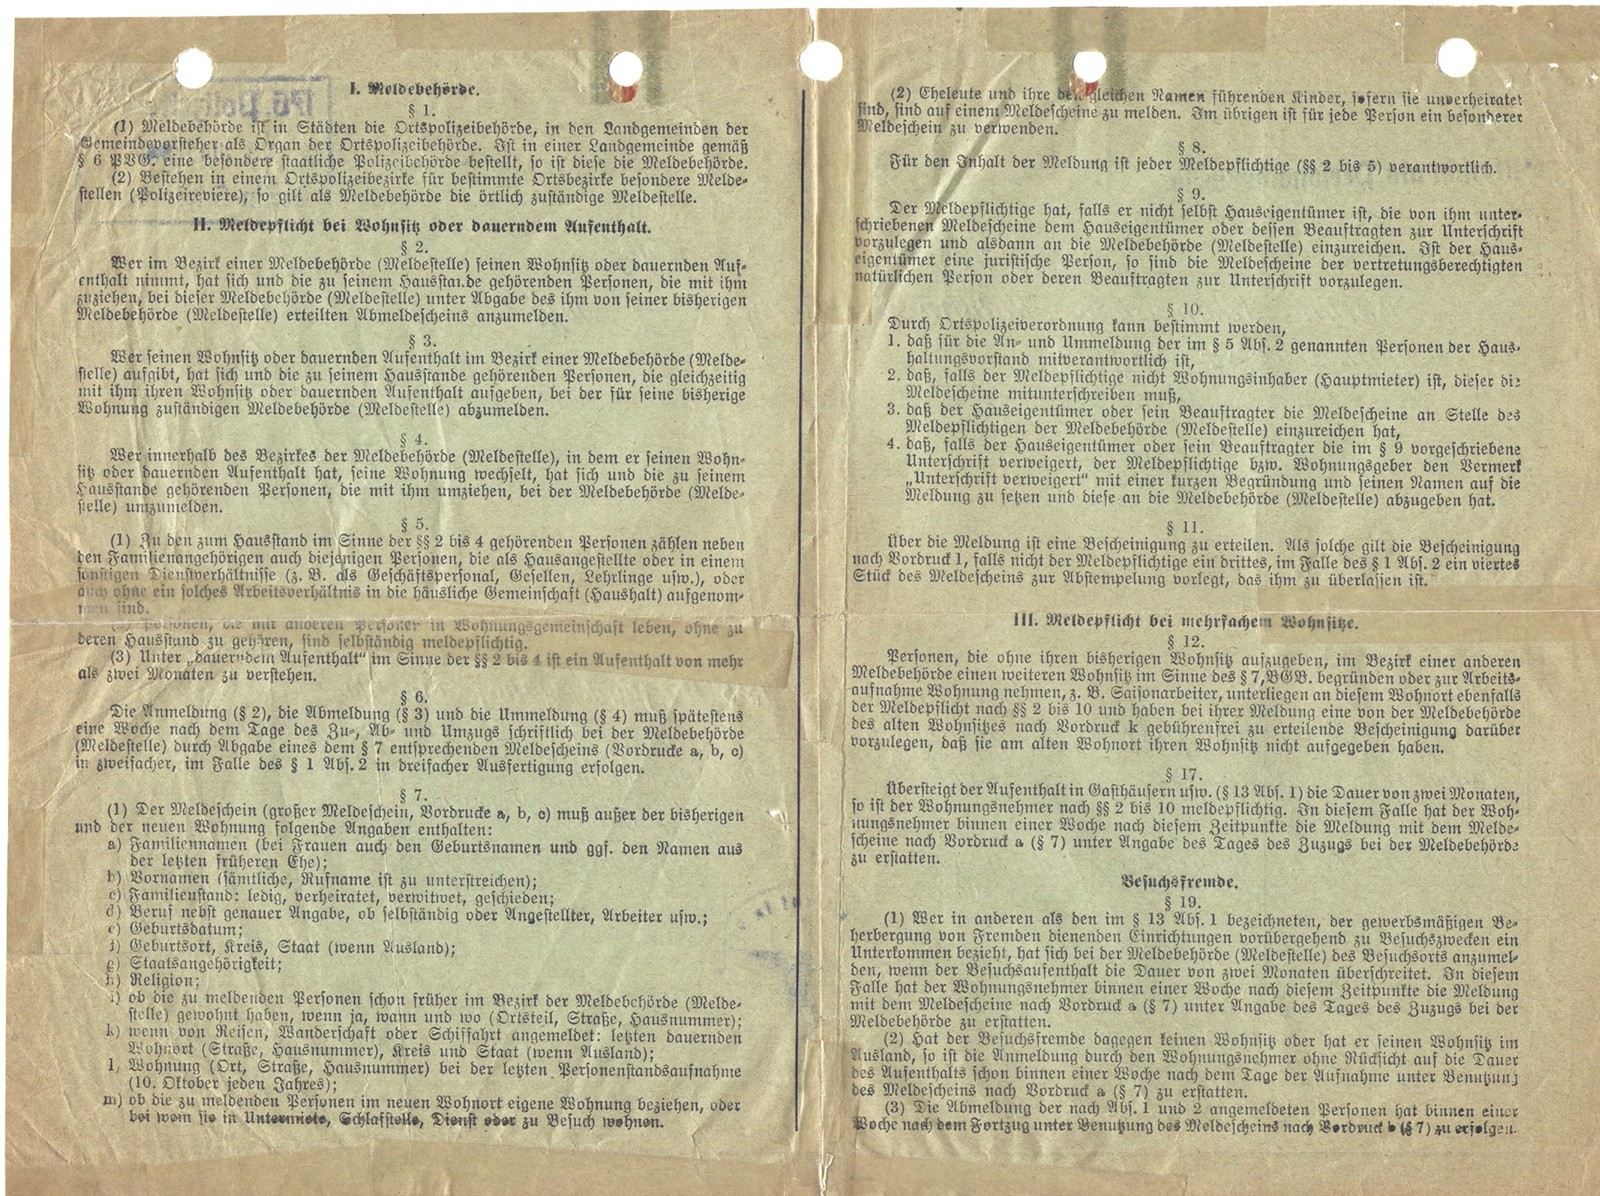 I. Meldebehörde.
§ 1.
(1) Meldebehörde ist in Städten die Ortspolizeibehörde, in den Landgemeinden der
Gemeindevorsteher als Organ der Ortspolizeibehörde. Ist in einer Landgemeinde gemäß
§ 6 PVG. eine besondere staatliche Polizeibehörde bestellt, so ist diese die Meldebehörde.
(2) Bestehen in einem Ortspolizeibezirke für bestimmte Ortsbezirke besondere Melde-
stellen (Polizeireviere), so gilt als Meldebehörde die örtlich zuständige Meldestelle.
II. Meldepflicht bei Wohnsitz oder dauerndem Aufenthalt.
§ 2.
Wer im Bezirk einer Meldebehörde (Meldestelle) seinen Wohnsitz oder dauernden Auf-
enthalt nimmt, hat sich und die zu seinem Hausstande gehörenden Personen, die mit ihm
zuziehen, bei dieser Meldebehörde (Meldestelle) unter Abgabe des ihm von seiner bisherigen
Meldebehörde (Meldestelle) erteilten Abmeldescheins anzumelden.
§ 3.
Wer seinen Wohnsitz oder dauernden Aufenthalt im Bezirk einer Meldebehörde (Melde-
stelle) aufgibt, hat sich und die zu seinem Hausstande gehörenden Personen, die gleichzeitig
mit ihm ihren Wohnsitz oder dauernden Aufenthalt aufgeben, bei der für seine bisherige
Wohnung zuständigen Meldebehörde (Meldestelle) abzumelden.
§ 4.
Wer innerhalb des Bezirkes der Meldebehörde (Meldestelle), in dem er seinen Wohn-
sitz oder dauernden Aufenthalt hat, seine Wohnung wechselt, hat sich und die zu seinem
Hausstande gehörenden Personen, die mit ihm umziehen, bei der Meldebehörde (Melde-
stelle) umzumelden.
§ 5.
(1) Zu den zum Hausstand im Sinne der §§ 2 bis 4 gehörenden Personen zählen neben
den Familienangehörigen auch diejenigen Personen, die als Hausangestellte oder in einem
sonstigen Dienstverhältnisse (z. B. als Geschäftspersonal, Gesellen, Lehrlinge usw.), oder
auch ohne ein solches Arbeitsverhältnis in die häusliche Gemeinschaft (Haushalt) aufgenom-
men sind.
(2) Personen, die mit anderen Personen in Wohnungsgemeinschaft leben, ohne zu
deren Hausstand zu gehören, sind selbständig meldepflichtig.
(3) Unter „dauerndem Aufenthalt" im Sinne der §§ 2 bis 4 ist ein Aufenthalt von mehr
als zwei Monaten zu verstehen.
§ 6.
Die Anmeldung (§ 2), die Abmeldung (§ 3) und die Ummeldung (§ 4) muß spätestens
eine Woche nach dem Tage des Zu-, Ab- und Umzugs schriftlich bei der Meldebehörde
(Meldestelle) durch Abgabe eines dem § 7 entsprechenden Meldescheins (Vordrucke a, b, c)
in zweifacher, im Falle des § 1 Abs. 2 in dreifacher Ausfertigung erfolgen.
§ 7.
(1) Der Meldeschein (großer Meldeschein, Vordrucke a, b, c) muß außer der bisherigen
und der neuen Wohnung folgende Angaben enthalten:
a) Familiennamen (bei Frauen auch den Geburtsnamen und ggf. den Namen aus
der letzten früheren Ehe);
b) Vornamen (sämtliche, Rufname ist zu unterstreichen);
c) Familienstand: ledig, verheiratet, verwitwet, geschieden;
d) Beruf nebst genauer Angabe, ob selbständig oder Angestellter, Arbeiter usw.;
e) Geburtsdatum;
f) Geburtsort, Kreis, Staat (wenn Ausland);
g) Staatsangehörigkeit;
h) Religion;
i) ob die zu meldenden Personen schon früher im Bezirk der Meldebehörde (Melde-
stelle) gewohnt haben, wenn ja, wann und wo (Ortsteil, Straße, Hausnummer);
k) wenn von Reisen, Wanderschaft oder Schiffahrt angemeldet: letzten dauernden
Wohnort (Straße, Hausnummer), Kreis und Staat (wenn Ausland);
l) Wohnung (Ort, Straße, Hausnummer) bei der letzten Personenstandsaufnahme
(10. Oktober jeden Jahres);
m) ob die zu meldenden Personen im neuen Wohnort eigene Wohnung beziehen, oder
bei wem sie in Untermiete, Schlafstelle, Dienst oder zu Besuch wohnen.
(2) Eheleute und ihre den gleichen Namen führenden Kinder, sofern sie unverheiratet
sind, sind auf einem Meldescheine zu melden. Im übrigen ist für jede Person ein besonderer
Meldeschein zu verwenden.
§ 8.
Für den Inhalt der Meldung ist jeder Meldepflichtige (§§ 2 bis 5) verantwortlich.
§ 9.
Der Meldepflichtige hat, falls er nicht selbst Hauseigentümer ist, die von ihm unter-
schriebenen Meldescheine dem Hauseigentümer oder dessen Beauftragten zur Unterschrift
vorzulegen und alsdann an die Meldebehörde (Meldestelle) einzureichen. Ist der Haus-
eigentümer eine juristische Person, so sind die Meldescheine der vertretungsberechtigten
natürlichen Person oder deren Beauftragten zur Unterschrift vorzulegen.
§ 10.
Durch Ortspolizeiverordnung kann bestimmt werden,
1. daß für die An- und Ummeldung der im § 5 Abs. 2 genannten Personen der Haus-
haltungsvorstand mitverantwortlich ist,
2. daß, falls der Meldepflichtige nicht Wohnungsinhaber (Hauptmieter) ist, dieser die
Meldescheine mitunterschreiben muß,
3. daß der Hauseigentümer oder sein Beauftragter die Meldescheine an Stelle des
Meldepflichtigen der Meldebehörde (Meldestelle) einzureichen hat,
4. daß, falls der Hauseigentümer oder sein Beauftragter die im § 9 vorgeschriebene
Unterschrift verweigert, der Meldepflichtige bzw. Wohnungsgeber den Vermerk
„Unterschrift verweigert" mit einer kurzen Begründung und seinen Namen auf die
Meldung zu setzen und diese an die Meldebehörde (Meldestelle) abzugeben hat.
§ 11.
Über die Meldung ist eine Bescheinigung zu erteilen. Als solche gilt die Bescheinigung
nach Vordruck 1, falls nicht der Meldepflichtige ein drittes, im Falle des § 1 Abs. 2 ein viertes
Stück des Meldescheins zur Abstempelung vorlegt, das ihm zu überlassen ist.
III. Meldepflicht bei mehrfachem Wohnsitze.
§ 12.
Personen, die ohne ihren bisherigen Wohnsitz aufzugeben, im Bezirk einer anderen
Meldebehörde einen weiteren Wohnsitz im Sinne des § 7, BGB. begründen oder zur Arbeits-
aufnahme Wohnung nehmen, z. B. Saisonarbeiter, unterliegen an diesem Wohnort ebenfalls
der Meldepflicht nach §§ 2 bis 10 und haben bei ihrer Meldung eine von der Meldebehörde
des alten Wohnsitzes nach Vordruck k gebührenfrei zu erteilende Bescheinigung darüber
vorzulegen, daß sie am alten Wohnort ihren Wohnsitz nicht aufgegeben haben.
§ 17.
Übersteigt der Aufenthalt in Gasthäusern usw. (§ 13 Abs. 1) die Dauer von zwei Monaten,
so ist der Wohnungsnehmer nach §§ 2 bis 10 meldepflichtig. In diesem Falle hat der Woh-
nungsnehmer binnen einer Woche nach diesem Zeitpunkte die Meldung mit dem Melde-
scheine nach Vordruck a (§ 7) unter Angabe des Tages des Zuzugs bei der Meldebehörde
zu erstatten.
Besuchsfremde.
§ 19.
(1) Wer in anderen als den im § 13 Abs. 1 bezeichneten, der gewerbsmäßigen Be-
herbergung von Fremden dienenden Einrichtungen vorübergehend zu Besuchszwecken ein
Unterkommen bezieht, hat sich bei der Meldebehörde (Meldestelle) des Besuchsorts anzumel-
den, wenn der Besuchsaufenthalt die Dauer von zwei Monaten überschreitet. In diesem
Falle hat der Wohnungsnehmer binnen einer Woche nach diesem Zeitpunkte die Meldung
mit dem Meldescheine nach Vordruck a (§ 7) unter Angabe des Tages des Zuzugs bei der
Meldebehörde zu erstatten.
(2) Hat der Besuchsfremde dagegen keinen Wohnsitz oder hat er seinen Wohnsitz im
Ausland, so ist die Anmeldung durch den Wohnungsnehmer ohne Rücksicht auf die Dauer
des Aufenthalts schon binnen einer Woche nach dem Tage der Aufnahme unter Benutzung
des Meldescheins nach Vordruck a (§ 7) zu erstatten.
(3) Die Abmeldung der nach Abs. 1 und 2 angemeldeten Personen hat binnen einer
Woche nach dem Fortzug unter Benutzung des Meldescheins nach Vordruck b (§ 7) zu erfolgen.